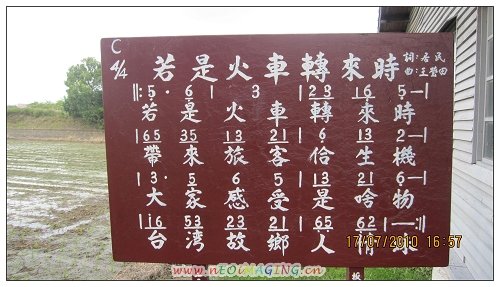 C 4/4 若是火車轉來時
詞:居民
曲:王
‖: 5· 6 | 1 3 | 23 16 5 — |
若是火車轉來時
65 35 13 21 | 6 13 2 — |
帶來旅客佮生機
3· 5 6 5 | 13 21 6 — |
大家感受是啥物
i6 53 23 21 | 65 62 | 1 — :‖
台湾故鄉人情味
17/07/2010 16:57
www.nEOiMAGING.cn
板